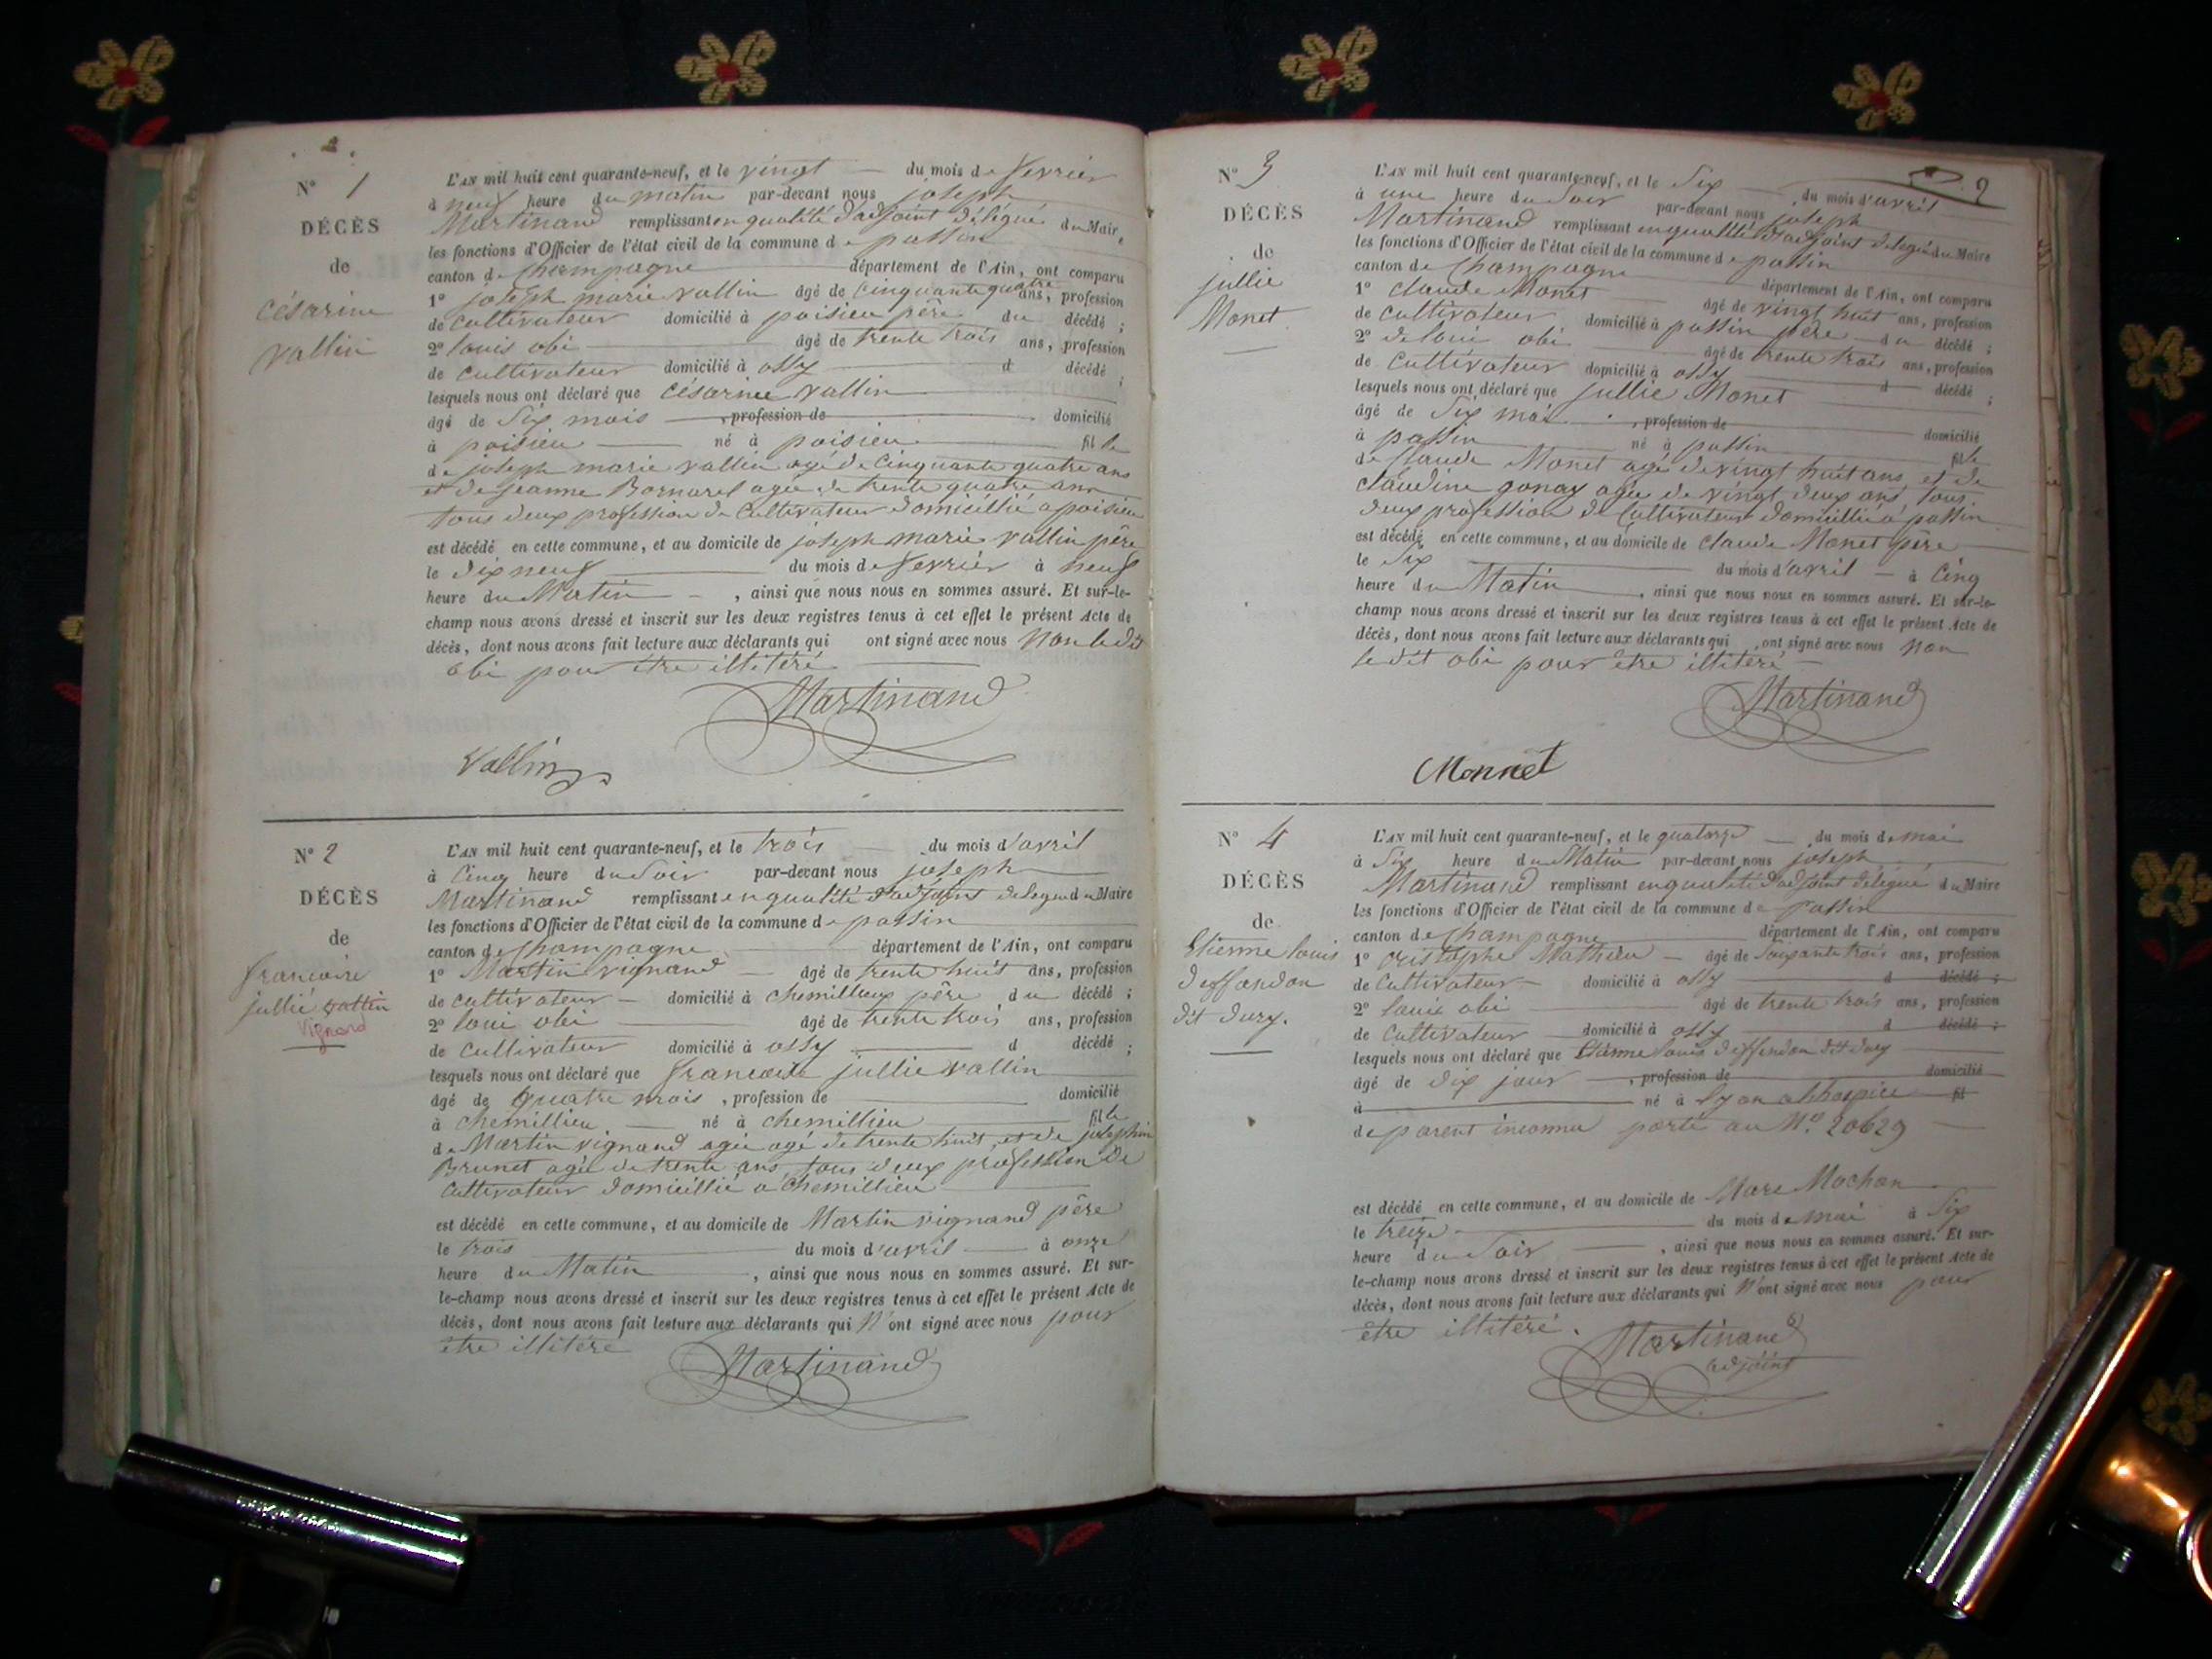 N° 1
DÉCÈS
de
césarine
vallin
L'AN mil huit cent quarante-neuf, et le vingt du mois de fevrier
à neuf heure du matin par-devant nous joseph
Martinand remplissant en qualité d'adjoint délégué du Maire
les fonctions d'Officier de l'état civil de la commune de passin
canton de Champagne département de l'Ain, ont comparu
1° joseph marie vallin âgé de cinquante quatre ans, profession
de cultivateur domicilié à poisieu père du décédé ;
2° louis obi âgé de trente trois ans, profession
de cultivateur domicilié à ossy d décédé ;
lesquels nous ont déclaré que césarine vallin
âgé de six mois , profession de domicilié
à poisieu né à poisieu fille
de joseph marie vallin agé de cinquante quatre ans
et de jeanne Bornarel agée de trente quatre ans
tous deux profession de cultivateur domicillié a poisieu
est décédé en cette commune, et au domicile de joseph marie vallin père
le dix neuf du mois de fevrier à neuf
heure du Matin , ainsi que nous nous en sommes assuré. Et sur-le-
champ nous avons dressé et inscrit sur les deux registres tenus à cet effet le présent Acte de
décès, dont nous avons fait lecture aux déclarants qui ont signé avec nous Non le dit
obi pour être illitéré
Martinand
Vallin
N° 2
DÉCÈS
de
francoise
jullie vallin
Vignard
L'AN mil huit cent quarante-neuf, et le trois du mois d'avril
à Cinq heure du Soir par-devant nous joseph
Martinand remplissant en qualité d'adjoint delegué du Maire
les fonctions d'Officier de l'état civil de la commune de passin
canton de Champagne département de l'Ain, ont comparu
1° Martin vignand âgé de trente huit ans, profession
de cultivateur domicilié à chemillieu père du décédé ;
2° loui obi âgé de trente trois ans, profession
de cultivateur domicilié à ossy d décédé ;
lesquels nous ont déclaré que francoise jullie vallin
âgé de quatre mois , profession de domicilié
à chemillieu né à chemillieu fille
de Martin vignand agée agé de trente huit, et de josephine
Brunet agée de trente ans tous deux profession de
cultivateur domicillié a chemillieu
est décédé en cette commune, et au domicile de Martin vignand père
le trois du mois d'avril à onze
heure du Matin , ainsi que nous nous en sommes assuré. Et sur-
le-champ nous avons dressé et inscrit sur les deux registres tenus à cet effet le présent Acte de
décès, dont nous avons fait lecture aux déclarants qui n'ont signé avec nous pour
être illitéré
Martinand
2
N° 3
DÉCÈS
de
jullie
Monet
L'AN mil huit cent quarante-neuf, et le Six du mois d'avril
à une heure du Soir par-devant nous joseph
Martinand remplissant en qualité d'adjoint delegué du Maire
les fonctions d'Officier de l'état civil de la commune de passin
canton de Champagne département de l'Ain, ont comparu
1° claude Monet âgé de vingt huit ans, profession
de cultivateur domicilié à passin père du décédé ;
2° loui obi âgé de trente trois ans, profession
de cultivateur domicilié à ossy d décédé ;
lesquels nous ont déclaré que jullie Monet
âgé de Six moi , profession de domicilié
à passin né à passin fille
de Claude Monet agé de vingt huit ans et de
claudine gonay agée de vingt deux ans, tous
deux profession de cultivateur domicillié a passin
est décédé en cette commune, et au domicile de Claude Monet père
le Six du mois d'avril à Cinq
heure du Matin , ainsi que nous nous en sommes assuré. Et sur-le-
champ nous avons dressé et inscrit sur les deux registres tenus à cet effet le présent Acte de
décès, dont nous avons fait lecture aux déclarants qui , ont signé avec nous Non
le dit obi pour être illitéré
Martinand
Monnet
N° 4
DÉCÈS
de
Etienne louis
deffandon
dit dury.
L'AN mil huit cent quarante-neuf, et le quatorze du mois de mai
à Six heure du Matin par-devant nous joseph
Martinand remplissant en qualité d'adjoint délégué du Maire
les fonctions d'Officier de l'état civil de la commune de passin
canton de Champagne département de l'Ain, ont comparu
1° cristophe Mathieu âgé de soixante trois ans, profession
de cultivateur domicilié à ossy d décédé ;
2° louis obi âgé de trente trois ans, profession
de cultivateur domicilié à ossy d décédé ;
lesquels nous ont déclaré que Etienne louis deffandon dit dury
âgé de dix jour , profession de domicilié
à né à Lyon a l'hospice fil
de parent inconnu porté au N° 20629
est décédé en cette commune, et au domicile de Marc Mochon
le treize du mois de mai à Six
heure du Soir , ainsi que nous nous en sommes assuré. Et sur-
le-champ nous avons dressé et inscrit sur les deux registres tenus à cet effet le présent Acte de
décès, dont nous avons fait lecture aux déclarants qui n'ont signé avec nous pour
être illitéré.
Martinand
adjoint